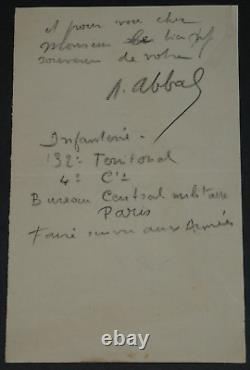 et pour vous cher
Monsieur le
souvenir de votre
A. Abbal
Infanterie.
132e Territorial
4e Cie
Bureau Central militaire
Paris
Faire suivre aux Armées
ebay
ericwid